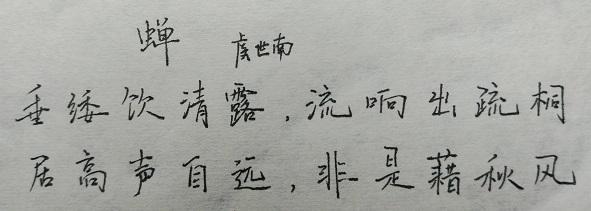 蝉 虞世南
垂緌饮清露,流响出疏桐
居高声自远,非是藉秋风